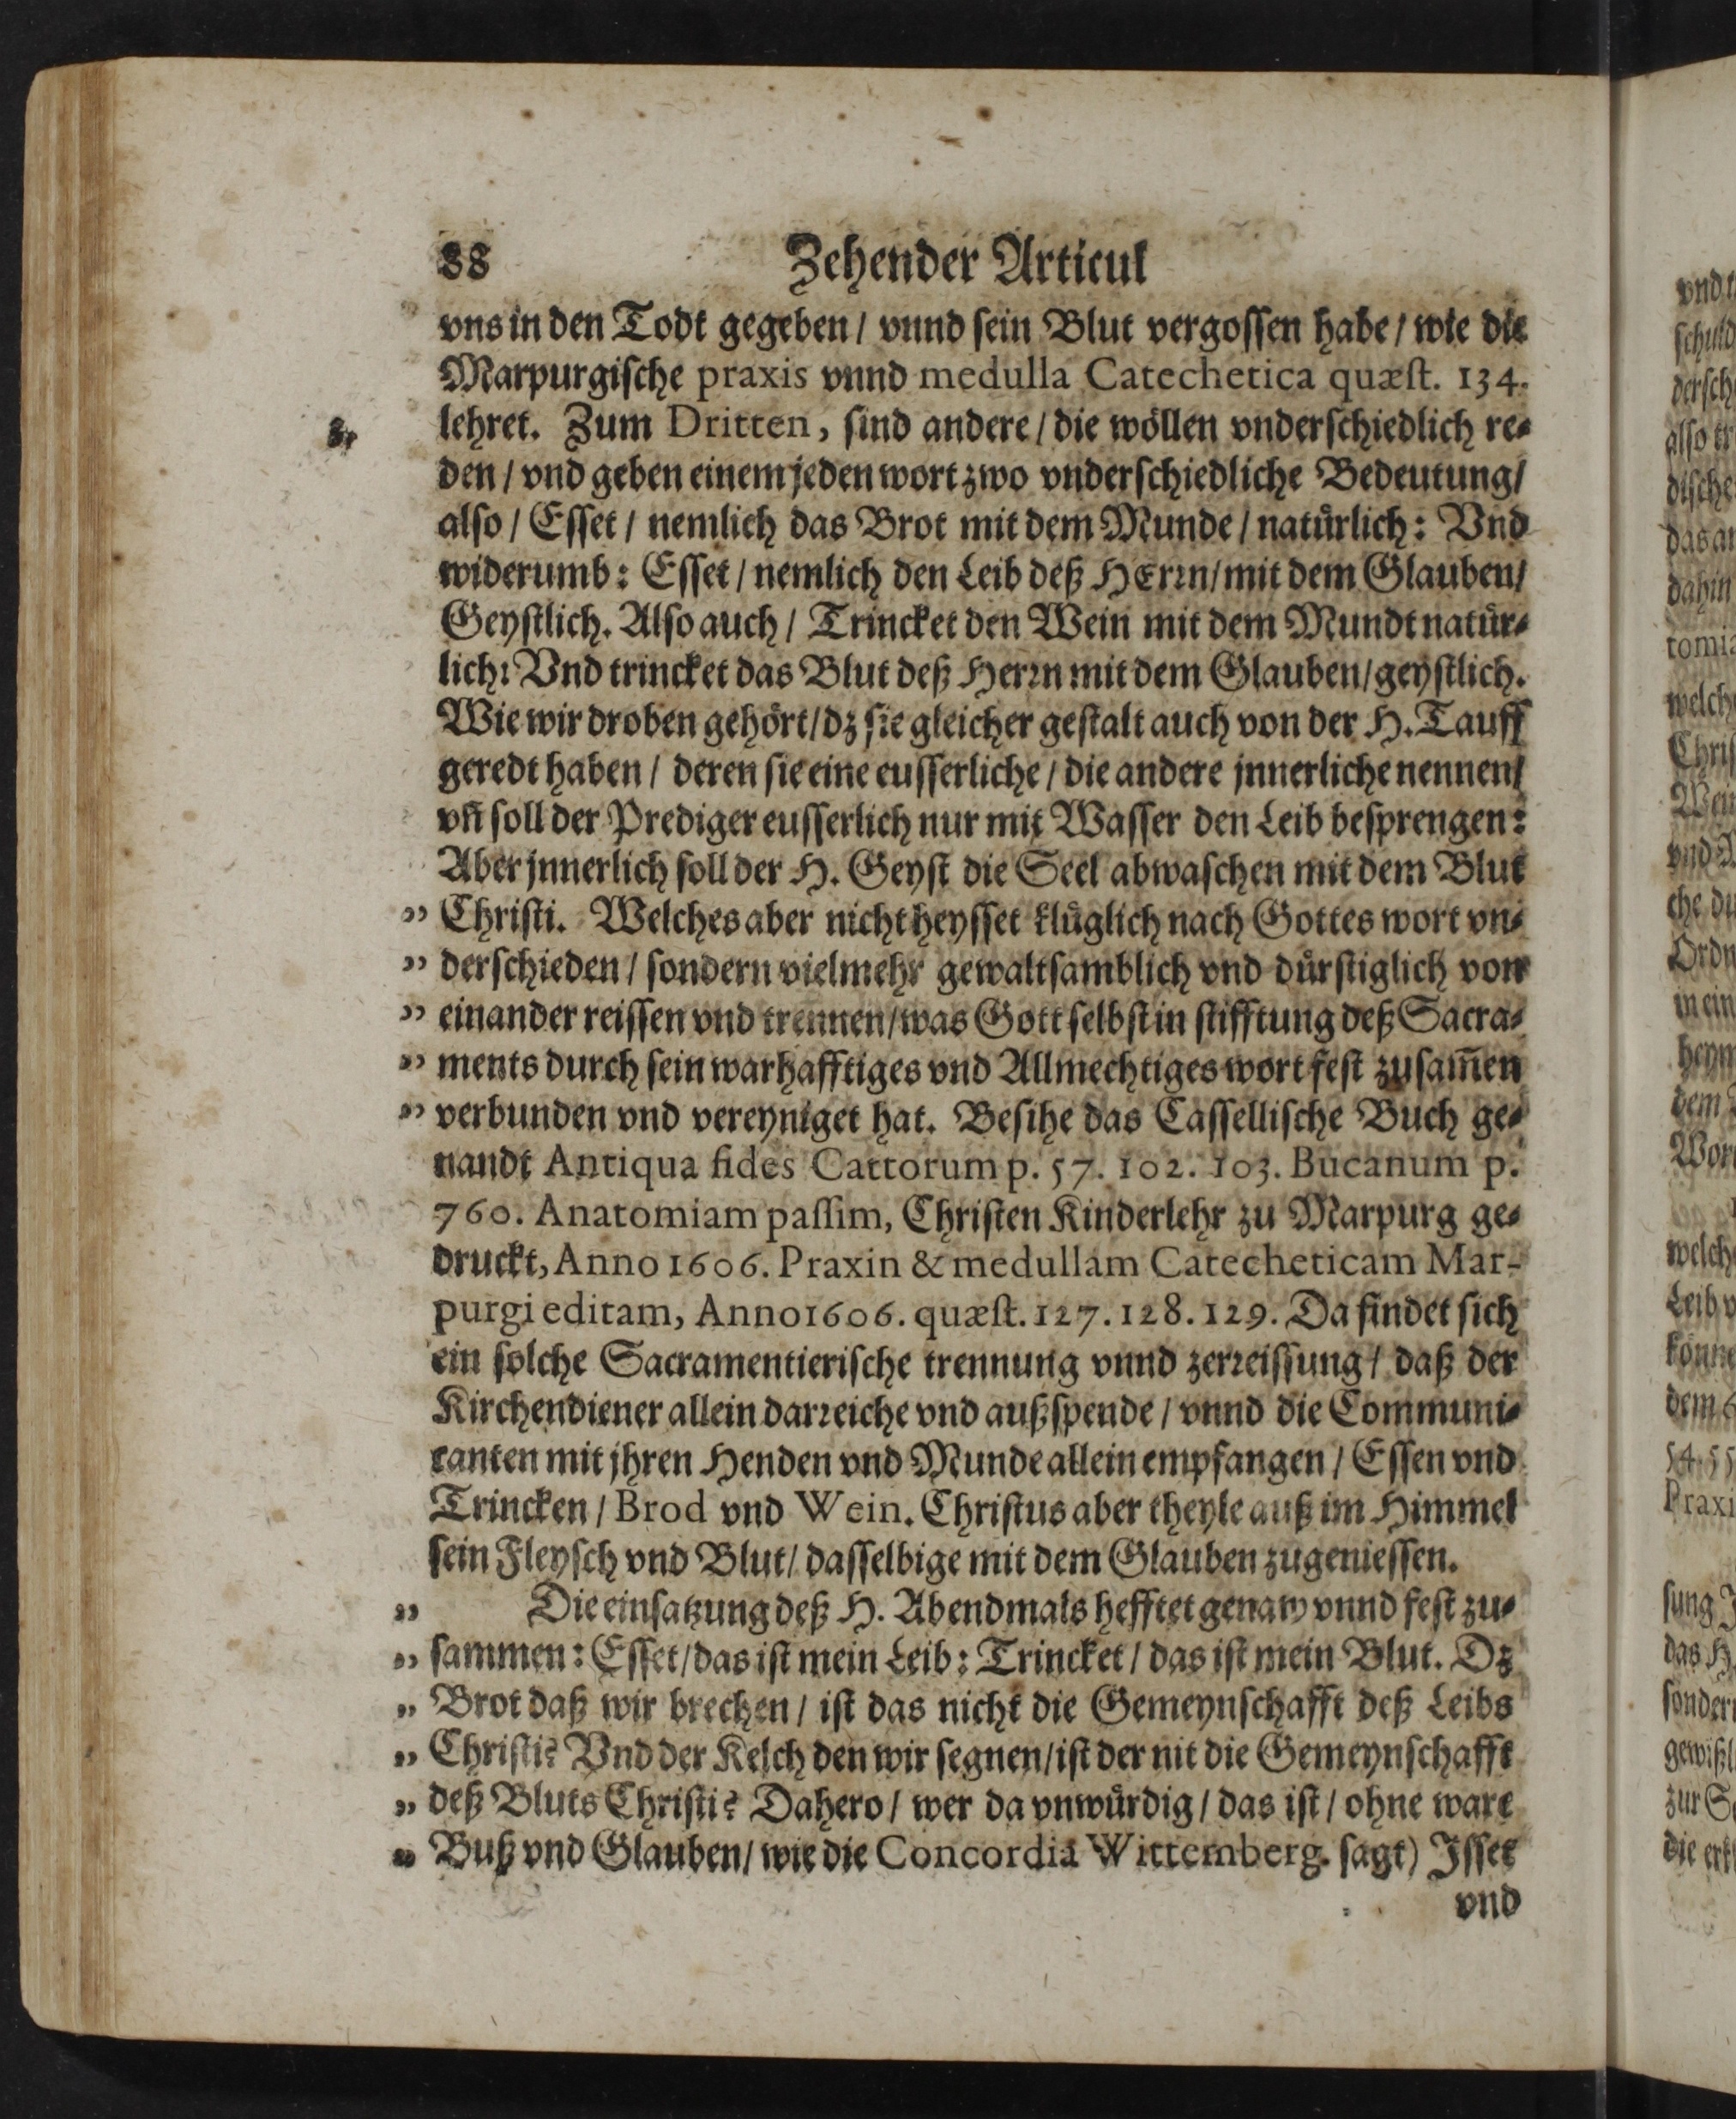 88 Zehender Articul
vns in den Todt gegeben / vnnd sein Blut vergossen habe / wie die
Marpurgische praxis vnnd medulla Catechetica quæst. 134.
3. lehret. Zum Dritten, sind andere / die wöllen vnderschiedlich re-
den / vnd geben einem jeden wort zwo vnderschiedliche Bedeutung /
also / Esset / nemlich das Brot mit dem Munde / natürlich: Vnd
widerumb: Esset / nemlich den Leib deß HErrn / mit dem Glauben /
Geystlich. Also auch / Trincket den Wein mit dem Mundt natür-
lich: Vnd trincket das Blut deß Herrn mit dem Glauben / geystlich.
Wie wir droben gehört / dz sie gleicher gestalt auch von der H. Tauff
geredt haben / deren sie eine eusserliche / die andere jnnerliche nennen /
vñ soll der Prediger eusserlich nur mit Wasser den Leib besprengen:
Aber jnnerlich soll der H. Geyst die Seel abwaschen mit dem Blut
„ Christi. Welches aber nicht heysset klüglich nach Gottes wort vn-
„ derschieden / sondern vielmehr gewaltsamblich vnd dürstiglich von
„ einander reissen vnd trennen / was Gott selbst in stifftung deß Sacra-
„ ments durch sein warhafftiges vnd Allmechtiges wort fest zusam̃en
„ verbunden vnd vereyniget hat. Besihe das Cassellische Buch ge-
nandt Antiqua fides Cattorum p. 57. 102. 103. Bucanum p.
760. Anatomiam passim, Christen Kinderlehr zu Marpurg ge-
druckt, Anno 1606. Praxin & medullam Catecheticam Mar-
purgi editam, Anno 1606. quæst. 127. 128. 129. Da findet sich
ein solche Sacramentierische trennung vnnd zerreissung / daß der
Kirchendiener allein darreiche vnd außspende / vnnd die Communi-
canten mit jhren Henden vnd Munde allein empfangen / Essen vnd
Trincken / Brod vnd Wein. Christus aber theyle auß im Himmel
sein Fleysch vnd Blut / dasselbige mit dem Glauben zugeniessen.
„ Die einsatzung deß H. Abendmals hefftet genaw vnnd fest zu-
„ sammen: Esset / das ist mein Leib: Trincket / das ist mein Blut. Dz
„ Brot daß wir brechen / ist das nicht die Gemeynschafft deß Leibs
„ Christi? Vnd der Kelch den wir segnen / ist der nit die Gemeynschafft
„ deß Bluts Christi? Dahero / wer da vnwürdig / das ist / ohne ware
„ Buß vnd Glauben / wie die Concordia Wittemberg. sagt) Isset
vnd